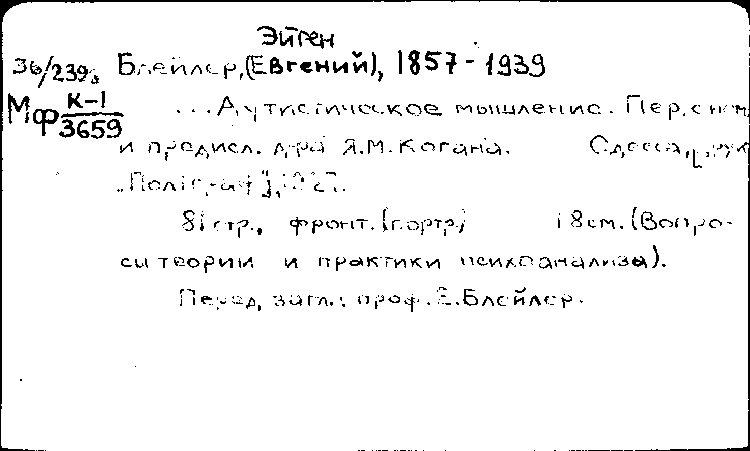 Эйген
36/2393 Блейлер, (Евгений), 1857-1939
Мф К-1/3659
...Аутистическое мышление. Пер. с нем.
и предисл. д-ра Я.М. Когана. Одесса,
"Полiграф", 1927.
81 стр., фронт. (портр.) 18 см. (Вопро-
сы теории и практики психоанализа).
Перед загл.: проф. Е. Блейлер.